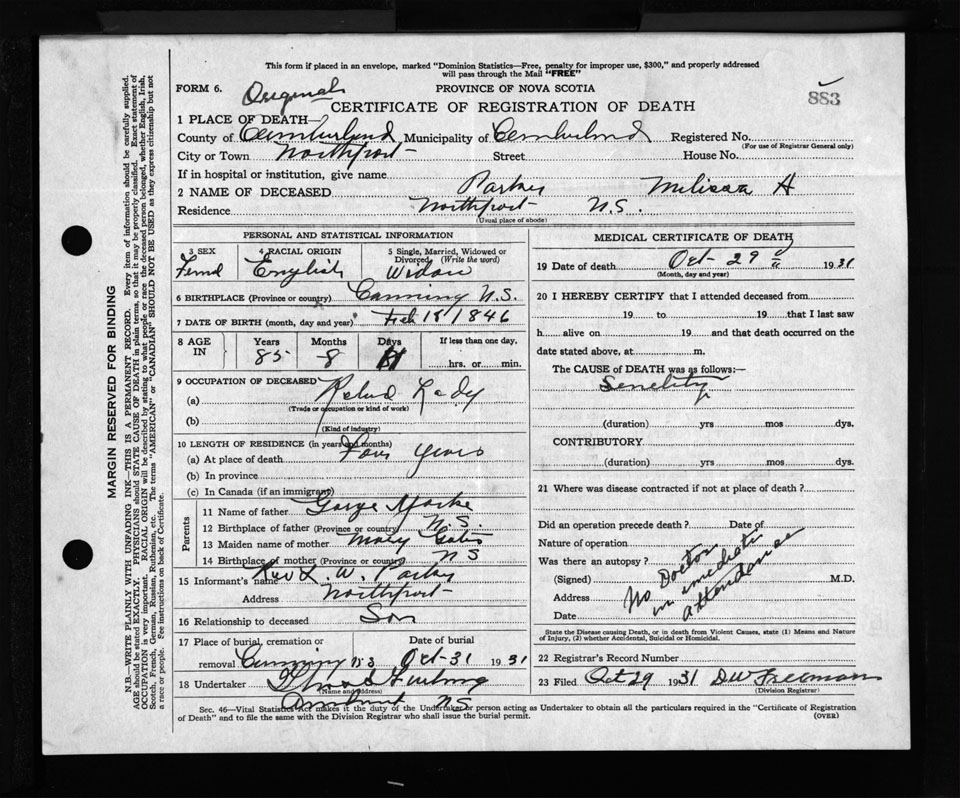 This form if placed in an envelope, marked "Dominion Statistics—Free, penalty for improper use, $300," and properly addressed
will pass through the Mail "FREE"
FORM 6. Original PROVINCE OF NOVA SCOTIA 883
CERTIFICATE OF REGISTRATION OF DEATH
1 PLACE OF DEATH—
County of Cumberland Municipality of Cumberland Registered No.
(For use of Registrar General only)
City or Town Northport Street House No.
If in hospital or institution, give name
2 NAME OF DECEASED Melissa H
Residence Northport N.S.
(Usual place of abode)
PERSONAL AND STATISTICAL INFORMATION
3 SEX 4 RACIAL ORIGIN 5 Single, Married, Widowed or
Divorced, (Write the word)
English Widow
6 BIRTHPLACE (Province or country) Canning N.S.
7 DATE OF BIRTH (month, day and year) Feb 18 1846
8 AGE IN Years Months Days If less than one day,
85 8 hrs. or min.
9 OCCUPATION OF DECEASED
(a) Lady
(Trade or occupation or kind of work)
(b)
(Kind of industry)
10 LENGTH OF RESIDENCE (in years and months)
(a) At place of death Four years
(b) In province
(c) In Canada (if an immigrant)
Parents
11 Name of father George
12 Birthplace of father (Province or country) N.S.
13 Maiden name of mother Mary
14 Birthplace of mother (Province or country) NS
15 Informant's name Rev L. W.
Address Northport
16 Relationship to deceased Son
17 Place of burial, cremation or Date of burial
removal Canning N.S Oct-31 1931
18 Undertaker
(Name and address)
Amherst NS
MEDICAL CERTIFICATE OF DEATH
19 Date of death Oct-29 1931
(Month, day and year)
20 I HEREBY CERTIFY that I attended deceased from
19 to 19 that I last saw
h alive on 19 and that death occurred on the
date stated above, at m.
The CAUSE of DEATH was as follows:—
Senility
(duration) yrs mos dys.
CONTRIBUTORY
(duration) yrs mos dys.
21 Where was disease contracted if not at place of death?
Did an operation precede death? Date of
Nature of operation
Was there an autopsy?
(Signed) M.D.
Address
Date
No Doctor
in immediate
attendance
State the Disease causing Death, or in death from Violent Causes, state (1) Means and Nature
of Injury, (2) whether Accidental, Suicidal or Homicidal.
22 Registrar's Record Number
23 Filed Oct 29 1931 DW Freeman
(Division Registrar)
Sec. 46—Vital Statistics Act makes it the duty of the Undertaker or person acting as Undertaker to obtain all the particulars required in the "Certificate of Registration
of Death" and to file the same with the Division Registrar who shall issue the burial permit. (OVER)
MARGIN RESERVED FOR BINDING
N.B.—WRITE PLAINLY WITH UNFADING INK—THIS IS A PERMANENT RECORD. Every item of information should be carefully supplied.
AGE should be stated EXACTLY. PHYSICIANS should STATE CAUSE OF DEATH in plain terms, so that it may be properly classified. Exact statement of
OCCUPATION is very important. RACIAL ORIGIN will be described by stating to what people or race the deceased person belonged, whether English, Irish,
Scotch, French, German, Russian, Ruthenian, etc. The terms "AMERICAN" or "CANADIAN" SHOULD NOT BE USED as they express citizenship but not
a race or people. See instructions on back of Certificate.